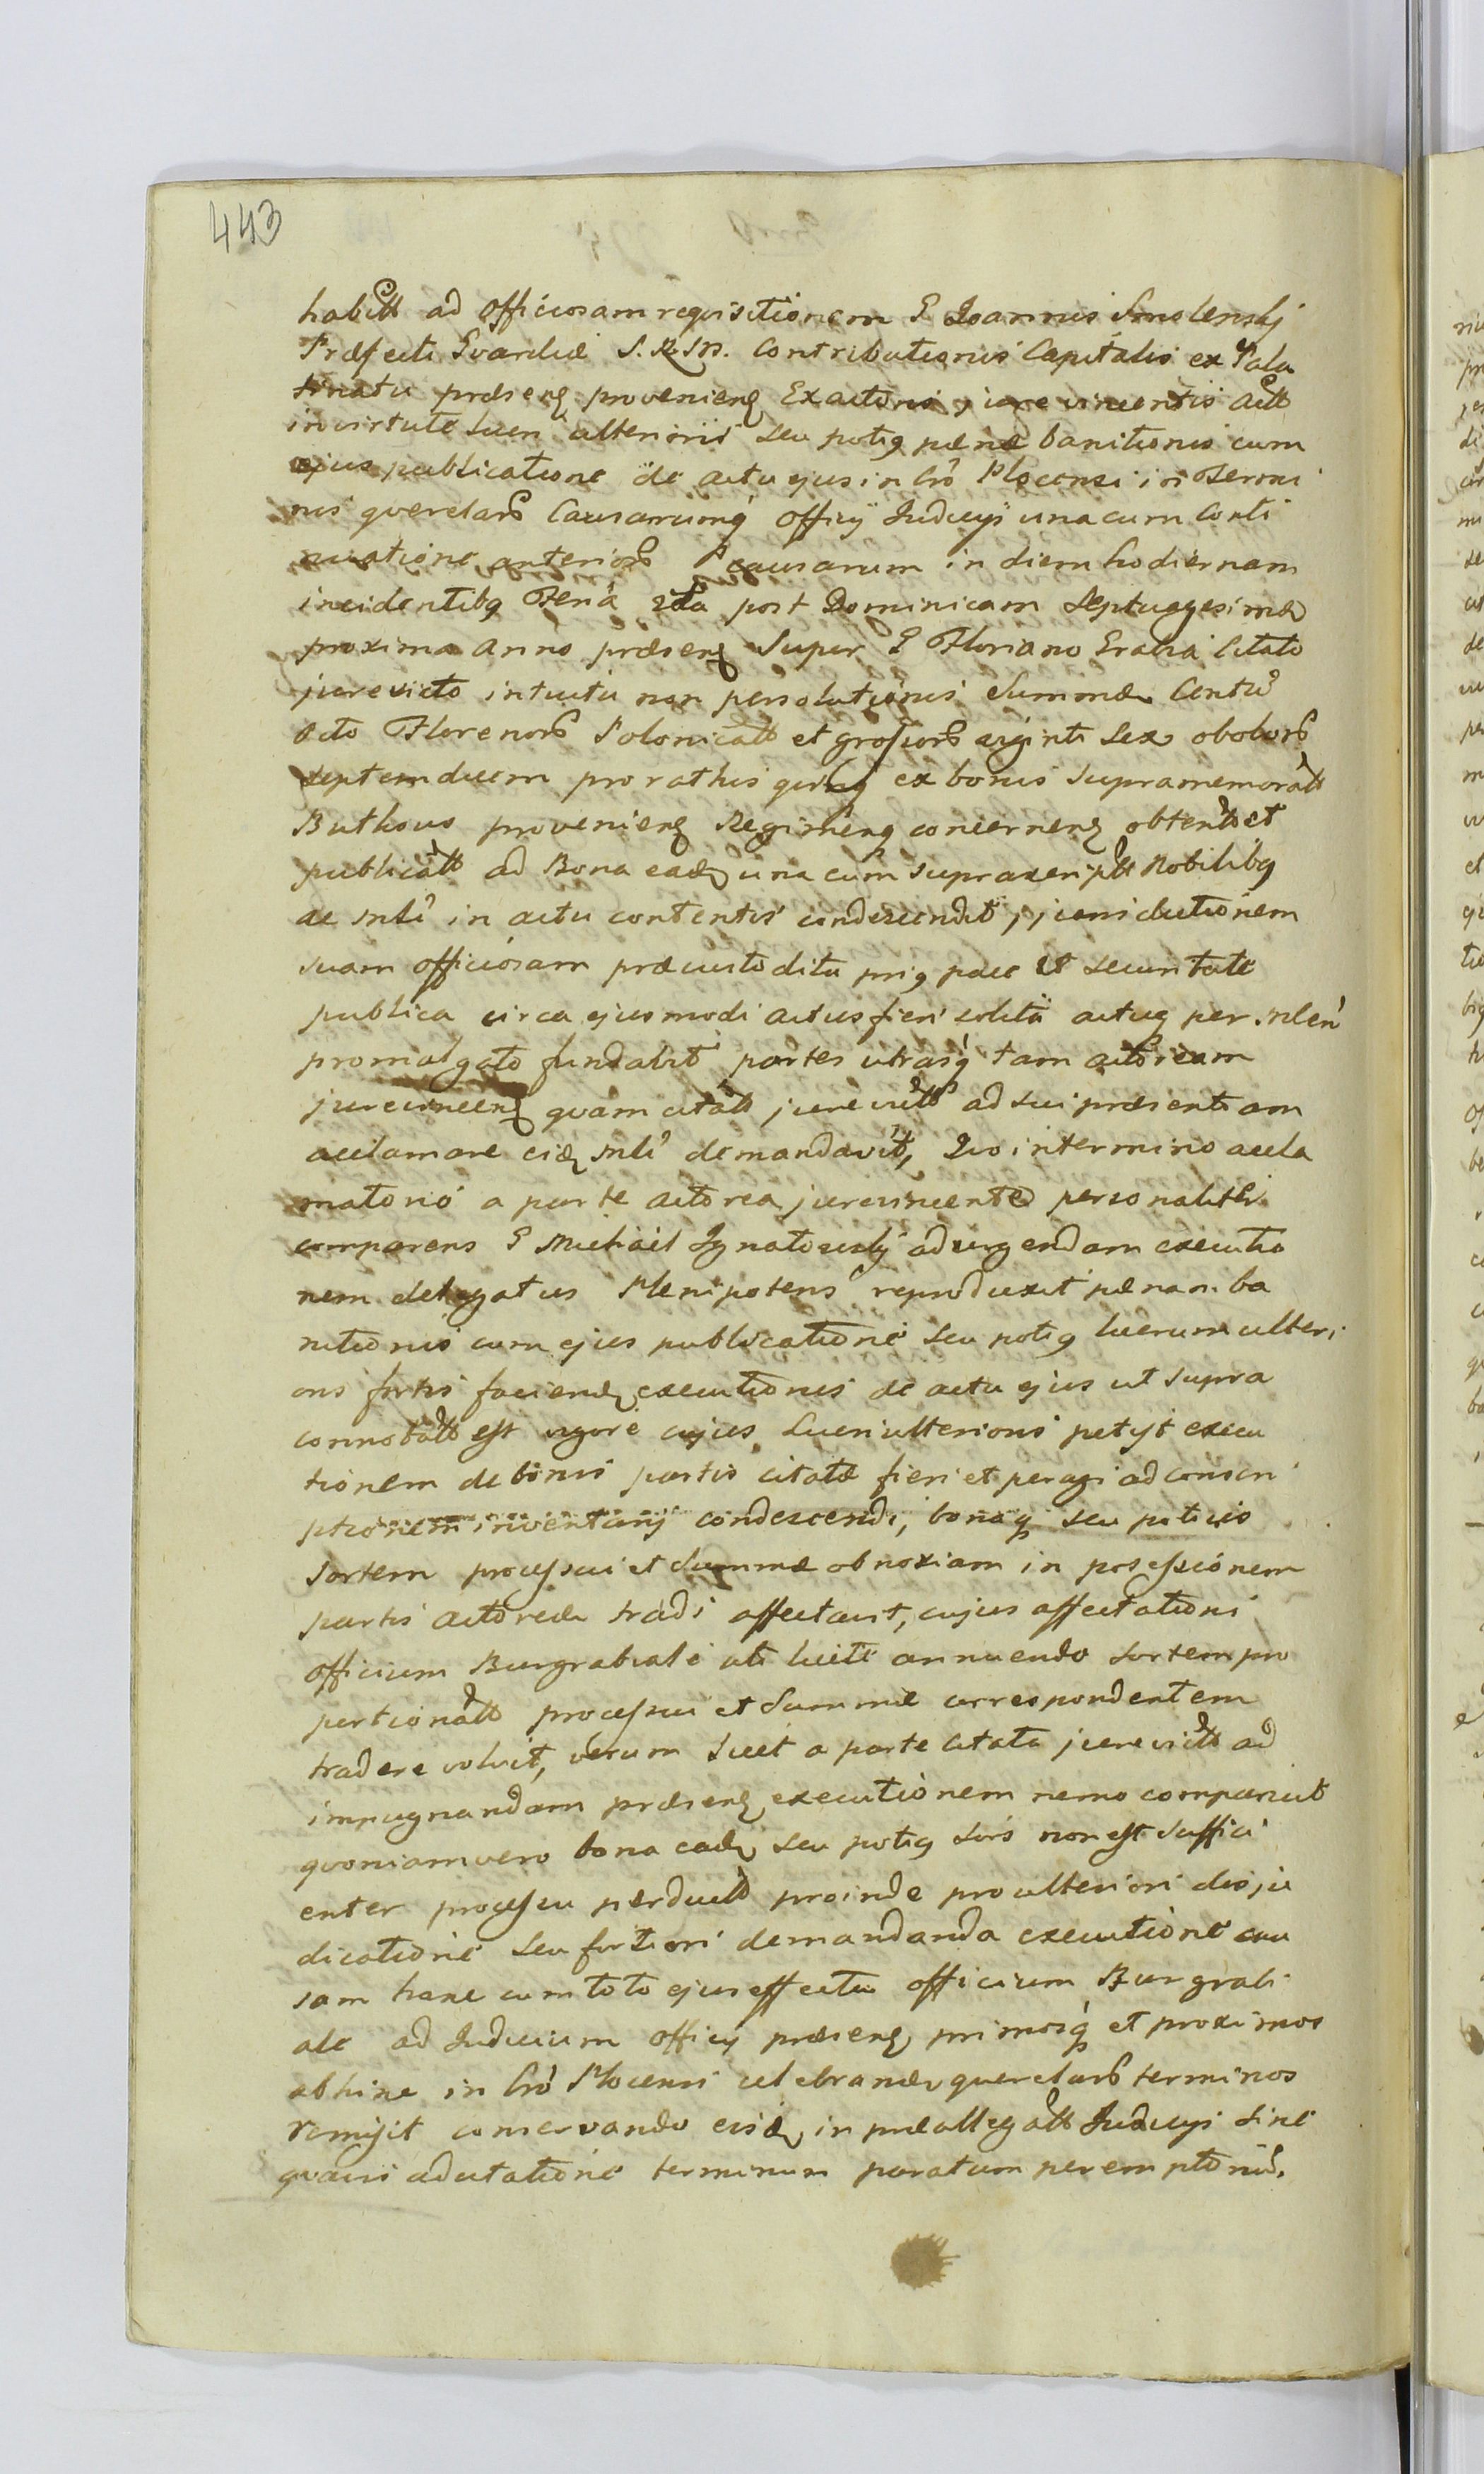 443
habitt ad Officiosam requisitionem G Joannis Smolenskj
Præfecti Gvardiæ S. R. M. Contributionis Capitalis ex Pala
tinatu præsenq provenienq Exactoris jurevincentis Actt
in virtute lucri ulterioris seu potiq pænæ banitionis cum
ejus publicatione de actu ejus in Crô Plocensi in Termi
nis querelarû Causarumq́ Officij Judicijs unacum Conti
nuatione anteriorû causarum in diem hodiernam
incidentibq Feria 2da post Dominicam Septuagesimæ
proxima Anno præsenq Super G Floriano Citato
jurevicto intuitu non persolutionis Summæ Centû
Octo Florenorû Polonicatt et grossiorû viginti Sex obolorû
septemdecim pro rathis ex bonis supramemoratt
provenienq concernenq obtent et
publicatt ad Bona eadq una cum suprascriptt Nobilibq
ac Mlî in actu contentis condescendit, jurisdictionem
suam officiosam præcustodita priq pace et securitate
publica circa ejusmodi actus fieri solita actuq per Mlen
promulgato fundavit partes utrasq́ tam actoream
jurevincenq quam citatt jurevictt ad sui præsentiam
acclamare eidq Mlî demandavit, Quo in termino accla
matorio a parte actorea jurevincente personaliter
comparens G Michaël Ignatowskj ad urgendam executio
nem delegatus Plenipotens reproduxit pænam ba
nitionis cum ejus publicatione seu potiq lucrum ulteri
oris fortis faciendq executionis de actu ejus ut supra
connotatt est vigore cujus Lucri ulterioris petijt execu
tionem de bonis partis citatæ fieri et peragi ad conscri
ptionem inventarij condescendi, bonaq́ seu potius
Sortem processui et Summæ obnoxiam in possessionem
partis actoreæ tradi affectavit, cujus affectationi
officium Burgrabiale uti licite annuendo sortem pro
portionatt processui et Summæ correspondentem
tradere voluit, verum Licet a parte Citata jurevictt ad
impugnandam præsenq executionem nemo comparuit
quoniam vero bona eadq seu potiq sors non est suffici
enter processu perductt proinde pro ulteriori disju
dicatione seu fortiori demandanda executione cau
sam hanc cum toto ejus effectu officium Burgrabi
ale ad Judicium officij præsenq primosq́ et proximos
abhinc in Crô Plocensi celebrandq querelarû terminos
remisit conservando eisdq in præallegatt Judicijs sine
quavis adcitatione terminum paratum peremptoriû.